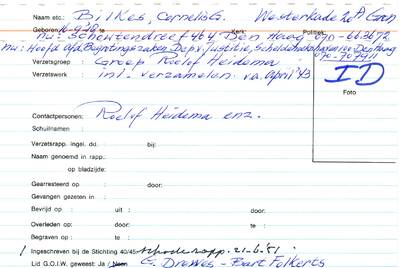 Naam etc.: Bilkes, Cornelis G. Westerkade 20A Gron
Geboren: 16-9-18 te Kerk Politiek
nu: Schoutendreef 464 Den Haag 070-663672
nu: Hoofd Afd. Begrotingszaken Dep. v. Justitie, Schedeldoekshaven Den Haag
070-707911
Verzetsgroep : Groep Roelof Heidema
Verzetswerk : inl. verzamelen v.a. April '43
ID
Foto
Contactpersonen: Roelof Heidema enz.
Schuilnamen :
Verzetsrapp. ingel. dd. : bij:
Naam genoemd in rapp.:
op bladzijde:
Gearresteerd op : door:
Gevangen gezeten in :
Bevrijd op : uit : door:
Overleden op: door: te :
Begraven op : te :
Ingeschreven bij de Stichting 40/45: schaderapp. 21-6-81
Lid G.O.I.W. geweest: Ja / Neen G. Drewes - Bart Folkerts